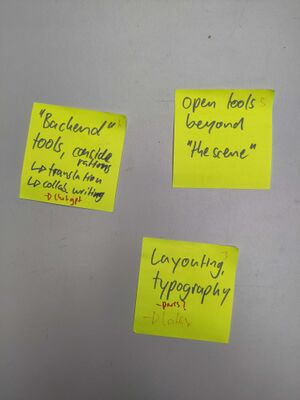 "Backend"
tools, conside
rations
↳ translation
↳ collab writing
→ Chatgpt
Open tools
beyond
"the scene"
Layouting,
typography